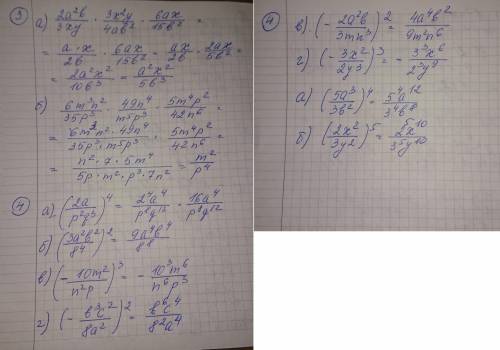 ③ а) 2a²b/3xy · 3x²y/4ab² · 6ax/15b³ =
= a·x/2b · 6ax/15b² = ax/2b · 2ax/5b² =
= 2a²x²/10b³ = a²x²/5b³
б) 6m³n²/35p³ · 49n⁴/m⁵p³ · 5m⁴p²/42n⁶ =
= 6m³n²·49n⁴/35p³·m⁵p³ · 5m⁴p²/42n⁶ =
= n²·7·5m⁴/5p·m²·p³·7n² = m²/p⁴
④ а) -(2a/p²q³)⁴ = 2⁴a⁴/p⁸q¹² · 16a⁴/p⁸q¹²
б) (3a²b²/8⁴)² = 9a⁴b⁴/8⁸
в) (-10m²/n²p)³ = -10³m⁶/n⁶p³
г) (-b³c²/8a²)² = b⁶c⁴/8²a⁴
④ в) (-2a²b/3mn³)² = 4a⁴b²/9m²n⁶
г) (-3x²/2y3)³ = -3³x⁶/2³y⁹
а) (5a³/3b²)⁴ = 5⁴a¹²/3⁴b⁸
б) (2x²/3y2)⁵ = 2⁵x¹⁰/3⁵y¹⁰